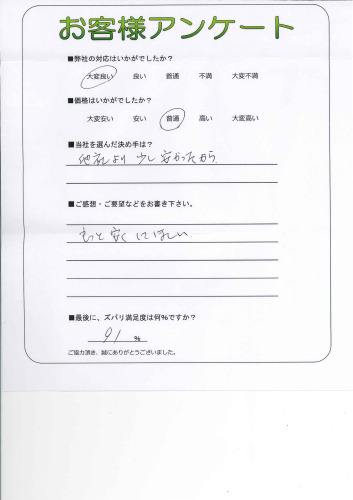 お客様アンケート
■弊社の対応はいかがでしたか？
大変良い 良い 普通 不満 大変不満
■価格はいかがでしたか？
大変安い 安い 普通 高い 大変高い
■当社を選んだ決め手は？
他社より少し安かったから
■ご感想・ご要望などをお書き下さい。
もっと安くしてほしい
■最後に、ズバリ満足度は何%ですか？
91 %
ご協力頂き、誠にありがとうございました。